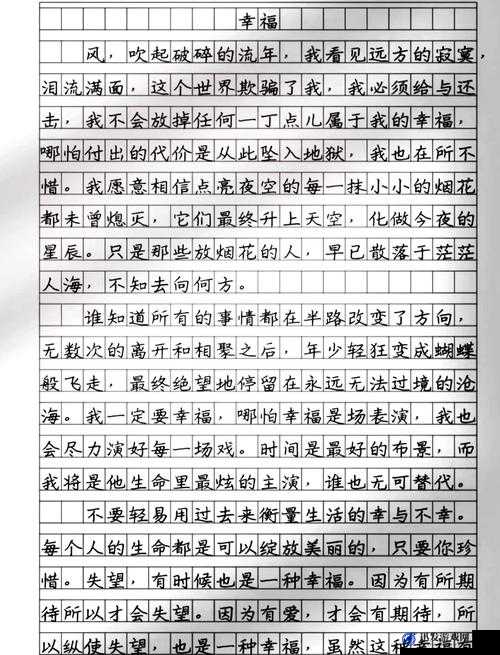 幸福
风，吹起破碎的流年，我看见远方的寂寞，
泪流满面，这个世界欺骗了我，我必须给与还
击，我不会放掉任何一丁点儿属于我的幸福，
哪怕付出的代价是从此坠入地狱，我也在所不
惜。我愿意相信点亮夜空的每一抹小小的烟花
都未曾熄灭，它们最终升上天空，化做今夜的
星辰。只是那些放烟花的人，早已散落于茫茫
人海，不知去向何方。
谁知道所有的事情都在半路改变了方向，
无数次的离开和相聚之后，年少轻狂变成蝴蝶
般飞走，最终绝望地停留在永远无法过境的沧
海。我一定要幸福，哪怕幸福是场表演，我也
会尽力演好每一场戏。时间是最好的布景，而
我将是他生命里最炫的主演，谁也无可替代。
不要轻易用过去来衡量生活的幸与不幸。
每个人的生命都是可以绽放美丽的，只要你珍
惜。失望，有时候也是一种幸福。因为有所期
待所以才会失望。因为有爱，才会有期待，所
以纵使失望，也是一种幸福，虽然这种幸福有